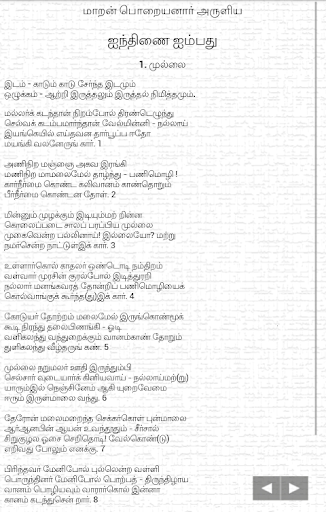 மாறன் பொறையனார் அருளிய
ஐந்திணை ஐம்பது
1. முல்லை
இடம் - காடும் காடு சேர்ந்த இடமும்
ஒழுக்கம் - ஆற்றி இருத்தலும் இருத்தல் நிமித்தமும்.
மல்லர்க் கடந்தான் நிறம்போல் திரண்டெழுந்து
செல்வக் கடம்பமர்ந்தான் வேல்மின்னி - நல்லாய்
இயங்கெயில் எய்தவன் தார்பூப்ப ஈதோ
மயங்கி வலனேருங் கார். 1
அணிநிற மஞ்ஞை அகவ இரங்கி
மணிநிற மாமலைமேல் தாழ்ந்து - பணிமொழி !
கார்நீர்மை கொண்ட கலிவானம் காண்தொறும்
பீர்நீர்மை கொண்டன தோள். 2
மின்னும் முழக்கும் இடியும்மற் றின்ன
கொலைப்படை சாலப் பரப்பிய முல்லை
முகைவென்ற பல்லினாய்! இல்லையோ? மற்று
நமர்சென்ற நாட்டுள்இக் கார். 3
உள்ளார்கொல் காதலர் ஒண்டொடி நம்திறம்
வள்வார் முரசின் குரல்போல் இடித்துரறி
நல்லார் மனங்கவரத் தோன்றிப் பணிமொழியைக்
கொல்வாங்குக் கூர்ந்த(து)இக் கார். 4
கோடுயர் தோற்ற மலைமேல் இருங்கொண்மூக்
கூடி நிரந்து தலைபிணங்கி - ஓடி
வளிகலந்து வந்துறைக்கும் வானம்காண் தோறும்
துளிகலந்து வீழ்தருங் கண். 5
முல்லை நறுமலர் ஊதி இருந்தும்பி
செல்சார் வுடையார்க் கினியவாய் - நல்லாய்மற்(று)
யாரும்இல் நெஞ்சினேம் ஆகி யுறைவேமை
ஈரும் இருள்மாலை வந்து. 6
தேரோன் மலைமறைந்த செக்கர்கொள் புன்மாலை
ஆர்ஆன்பின் ஆயன் உவந்தூதும் - சீர்சால்
சிறுகுழல ஓசை செறிதொடி! வேல்கொண்(டு)
எறிவது போலும் எனக்கு. 7
பிரிந்தவர் மேனிபோல் புல்லென்ற வள்ளி
பொருந்தினர் மேனிபோல் பொற்பத் - திருந்திழாய
வானம் பொழியவும் வாரார்கொல் இன்னா
கானம் கடந்துசென் றார். 8